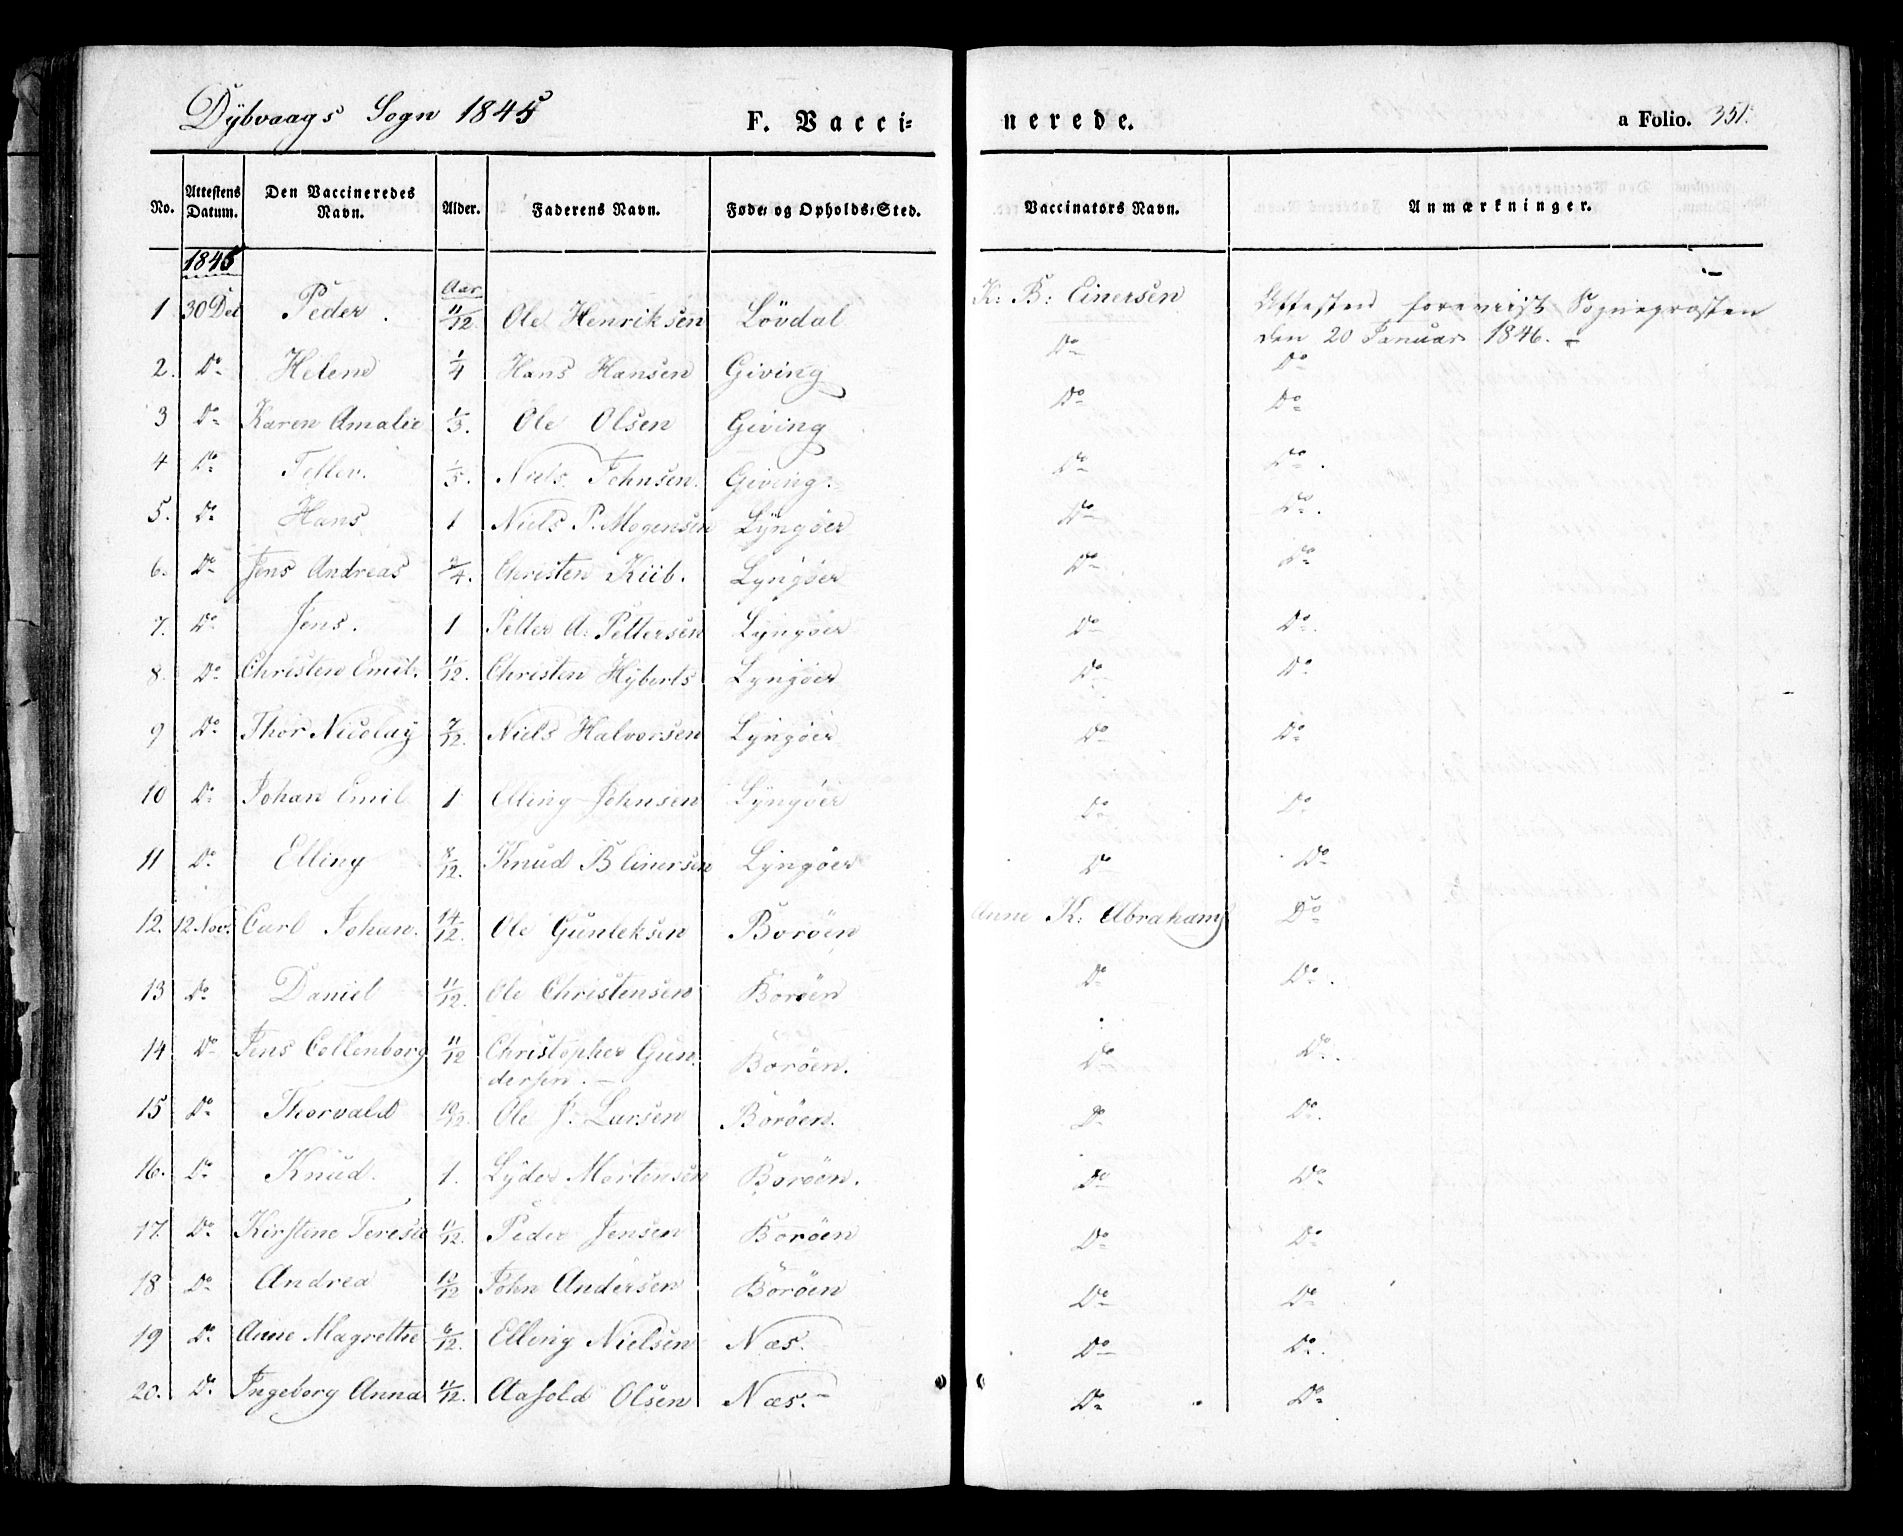 Dybvaags Sogn 1845 F. Vaccinerede. a Folio. 351.
No. Attestens Datum. Den Vaccineredes Navn. Alder. Faderens Navn. Føde- og Opholds-Sted. Vaccinators Navn. Anmærkninger.
1845 Aar
1 30 Dec Peder. 11/12. Ole Henriksen Lövdal K: B: Einersen Attesten foreviist Sognepræsten
den 20 Januar 1846.
2. Do Helene 1/4 Hans Hansen Giving Do Do
3 Do Karen Amalie 1/3. Ole Olsen Giving Do Do
4 Do Tellev. 1/5. Niels Johnsen. Giving. Do Do.
5. Do Hans 1 Niels P. Mogensen Lyngöer Do Do.
6. Do Jens Andreas 3/4. Christen Kiib. Lyngöer Do Do
7. Do Jens. 1 Petter A: Pettersen Lyngöer Do Do.
8. Do Christen Emil. 11/12. Christen Hyberts Lyngöer Do Do
9 Do Thor Nicolay 7/12. Niels Halvorsen Lyngöer Do Do
10 Do Johan Emil 1 Elling Johnsen Lyngöer Do Do
11 Do Elling 8/12. Knud B Einersen Lyngöer Do Do
12. 12 Nov. Carl Johan. 14/12. Ole Gunleksen Boröen Anne K: Abrahams Do
13 Do Daniel 11/12. Ole Christensen Boröen Do Do.
14 Do Jens Collenborg 11/12 Christopher Gun-
dersen. Boröen. Do Do.
15 Do Thorvald 10/12. Ole J. Larsen Boröen. Do Do.
16. Do Knud. 1. Lyder Mortensen Boröen. Do Do
17. Do Kirstine Teresie 11/12. Peder Jensen Boröen Do Do
18 Do Andrea 10/12 John Andersen Boröen Do Do
19 Do Anne Magrethe 6/12. Elling Nielsen Næs. Do Do.
20. Do Ingeborg Anna 11/12. Aasold Olsen Næs. Do Do